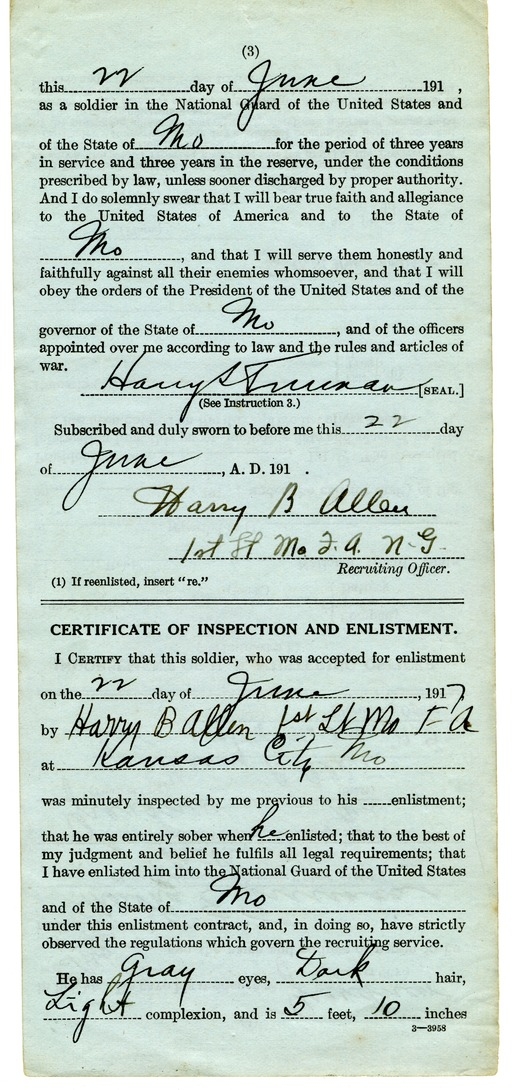 (3)
this 22 day of June 191 ,
as a soldier in the National Guard of the United States and
of the State of Mo for the period of three years
in service and three years in the reserve, under the conditions
prescribed by law, unless sooner discharged by proper authority.
And I do solemnly swear that I will bear true faith and allegiance
to the United States of America and to the State of
Mo, and that I will serve them honestly and
faithfully against all their enemies whomsoever, and that I will
obey the orders of the President of the United States and of the
governor of the State of Mo, and of the officers
appointed over me according to law and the rules and articles of
war.
Harry S Truman [SEAL.]
(See Instruction 3.)
Subscribed and duly sworn to before me this 22 day
of June, A. D. 191 .
Harry B Allen
1st Lt Mo F.A. N.G.
Recruiting Officer.
(1) If reenlisted, insert "re."
CERTIFICATE OF INSPECTION AND ENLISTMENT.
I CERTIFY that this soldier, who was accepted for enlistment
on the 22 day of June, 1917
by Harry B Allen 1st Lt Mo F A
at Kansas City Mo
was minutely inspected by me previous to his enlistment;
that he was entirely sober when he enlisted; that to the best of
my judgment and belief he fulfils all legal requirements; that
I have enlisted him into the National Guard of the United States
and of the State of Mo
under this enlistment contract, and, in doing so, have strictly
observed the regulations which govern the recruiting service.
He has Gray eyes, Dark hair,
Light complexion, and is 5 feet, 10 inches
3—3958